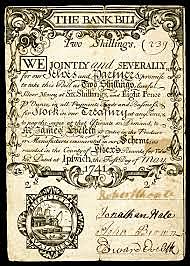 THE BANK BILL
Two Shillings. (239
WE JOINTLY and SEVERALLY,
for our Selves and Partners promise
to take this Bill as Two Shillings, lawful
Silver Money at Six Shillings and Eight Pence
P Ounce, in all Payments, Trade and Business
for Stock in our Treasury at any time
Mr James Eveleth or Order in the Produce
or Manufactures enumerated in our Scheme
recorded in the County of Essex
Dated at Ipswich, the First Day of May
1741
2 s 2 d
Jonathan Hale
John Brown
Edward Eveleth